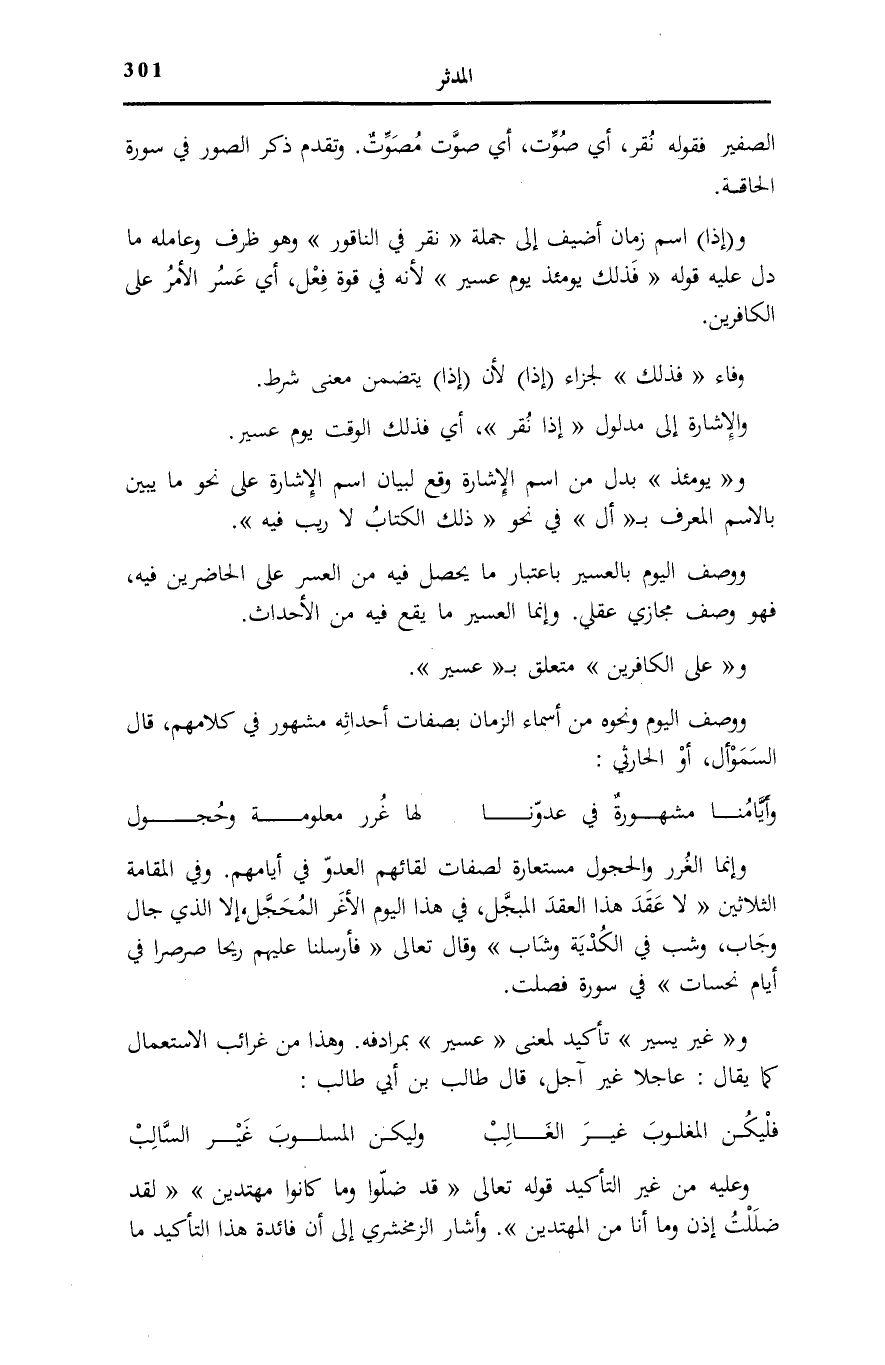 301
المدثر
الصفير فقوله نُقر، أي صُوِّت، أي صوَّت مُصَوِّتٌ. وتقدم ذكر الصور في سورة
الحاقة.
و(إذا) اسم زمان أضيف إلى جملة « نقر في الناقور » وهو ظرف وعامله ما
دل عليه قوله « فَذلك يومئذ يوم عسير » لأنه في قوة فِعْل، أي عَسُر الأمرُ على
الكافرين.
وفاء « فذلك » لجزاء (إذا) لأن (إذا) يتضمن معنى شرط.
والإشارة إلى مدلول « إذا نُقر »، أي فذلك الوقت يوم عسير.
و« يومئذ » بدل من اسم الإشارة وقع لبيان اسم الإشارة على نحو ما يبين
بالاسم المعرف بـ« أل » في نحو « ذلك الكتابُ لا ريب فيه ».
ووصف اليوم بالعسير باعتبار ما يحصل فيه من العسر على الحاضرين فيه،
فهو وصف مجازي عقلي. وإنما العسير ما يقع فيه من الأحداث.
و« على الكافرين » متعلق بـ« عسير ».
ووصف اليوم ونحوه من أسماء الزمان بصفات أحداثِه مشهور في كلامهم، قال
السَمَوْأل، أوْ الحارثي :
وأيَّامُنـــا مشهـــورةٌ في عدوّنـــا لها غُرر معلومـــة وحُجـــول
وإنما الغُرر والحجول مستعارة لصفات لقائهم العدوّ في أيامهم. وفي المقامة
الثلاثين « لا عَقَدَ هذا العقدَ المبجَّل، في هذا اليوم الأغَر المُحَجَّل، إلا الذي جال
وجَاب، وشب في الكُدْيَة وشَاب » وقال تعالى « فأرسلنا عليهم ريحا صرصرا في
أيام نحسات » في سورة فصلت.
و« غير يسير » تأكيد لمعنى « عسير » بمرادفه. وهذا من غرائب الاستعمال
كما يقال : عاجلا غير آجل، قال طالب بن أبي طالب :
فلْيكُـن المغلـوبَ غيـرَ الغَـــالِبْ وليكـن المسلـــوبَ غَيْـــر السَّالِبْ
وعليه من غير التأكيد قوله تعالى « قد ضلّوا وما كانوا مهتدين » « لقد
ضلَلْتُ إذن وما أنا من المهتدين ». وأشار الزمخشري إلى أن فائدة هذا التأكيد ما